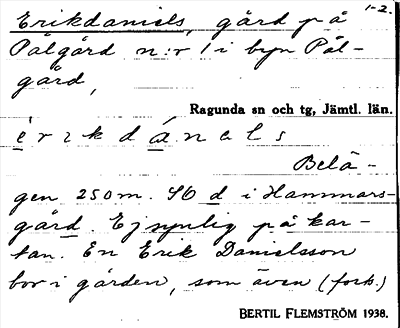 1-2.
Erikdaniels, gård på
Pålgård n:r 1 i byn Pål-
gård,
Ragunda sn och tg, Jämtl. län.
èrıkdánəls
Belä-
gen 250 m. SO d i Hammars-
gård. Ej synlig på kar-
tan. En Erik Danielsson
bor i gården, som även (forts.)
BERTIL FLEMSTRÖM 1938.